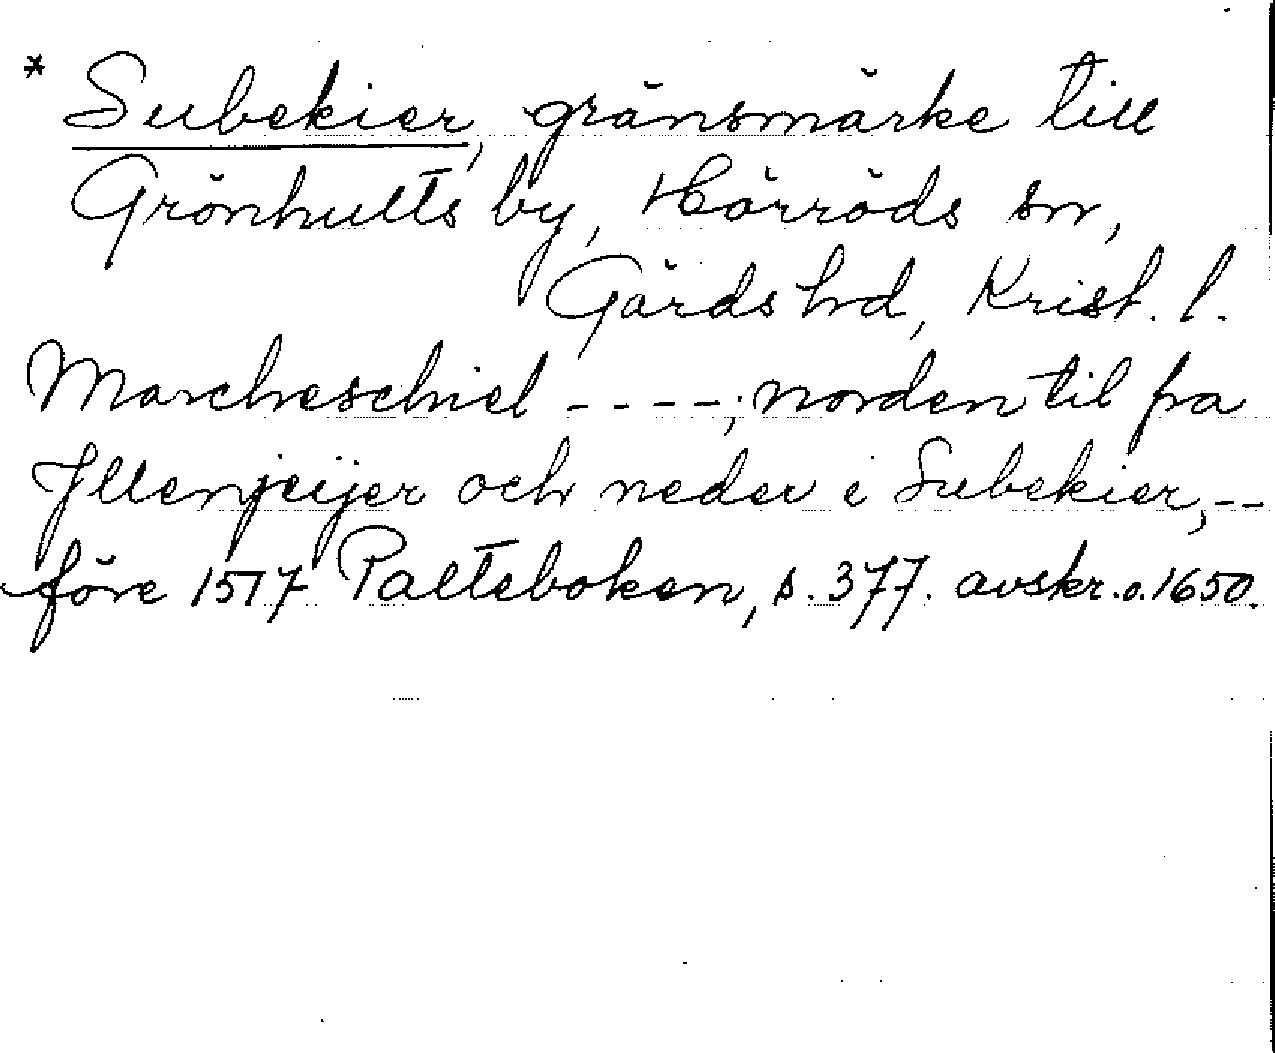 * Subekier, gränsmärke till
Grönhults by, Hörröds sn,
Gärds hrd, Krist. l.
Marcheschiel ----; norden til fra
Jllenjeijer och neder i Subekier, --
före 1517 Palteboken, s. 377. avskr. o. 1650.